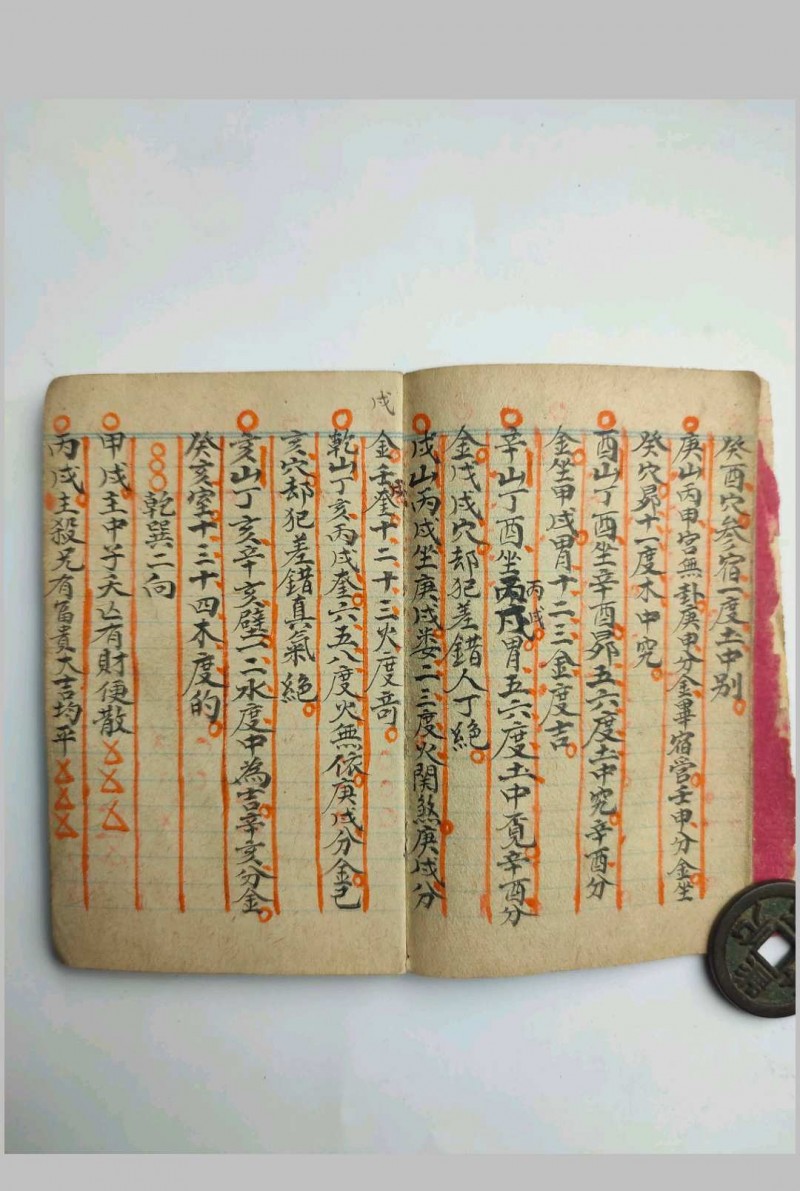 癸酉穴參宿一度土中別
庚山丙甲宮無卦庚申分金畢宿營壬申分金坐
癸穴昴十一度木中究
酉山丁酉坐辛酉昴五六度土中究辛酉分
金坐甲戌胃十二三金度吉
辛山丁酉坐丙戌胃五六度土中覓辛酉分
丙戌
金戊戌穴却犯差錯人丁絶
戌山丙戌坐庚戌娄二三度火関煞庚戌分
戌
金壬奎十二十三火度奇
戌
乾山丁亥丙戌奎六五八度火無依庚戌分金己
亥穴却犯差錯真氣絶
亥山丁亥辛亥壁一二水度中為吉辛亥分金
癸亥室十三十四木度的
乾巽二向
甲戌主中子夭亡有財便散
丙戌主殺兄有冨貴大吉均平